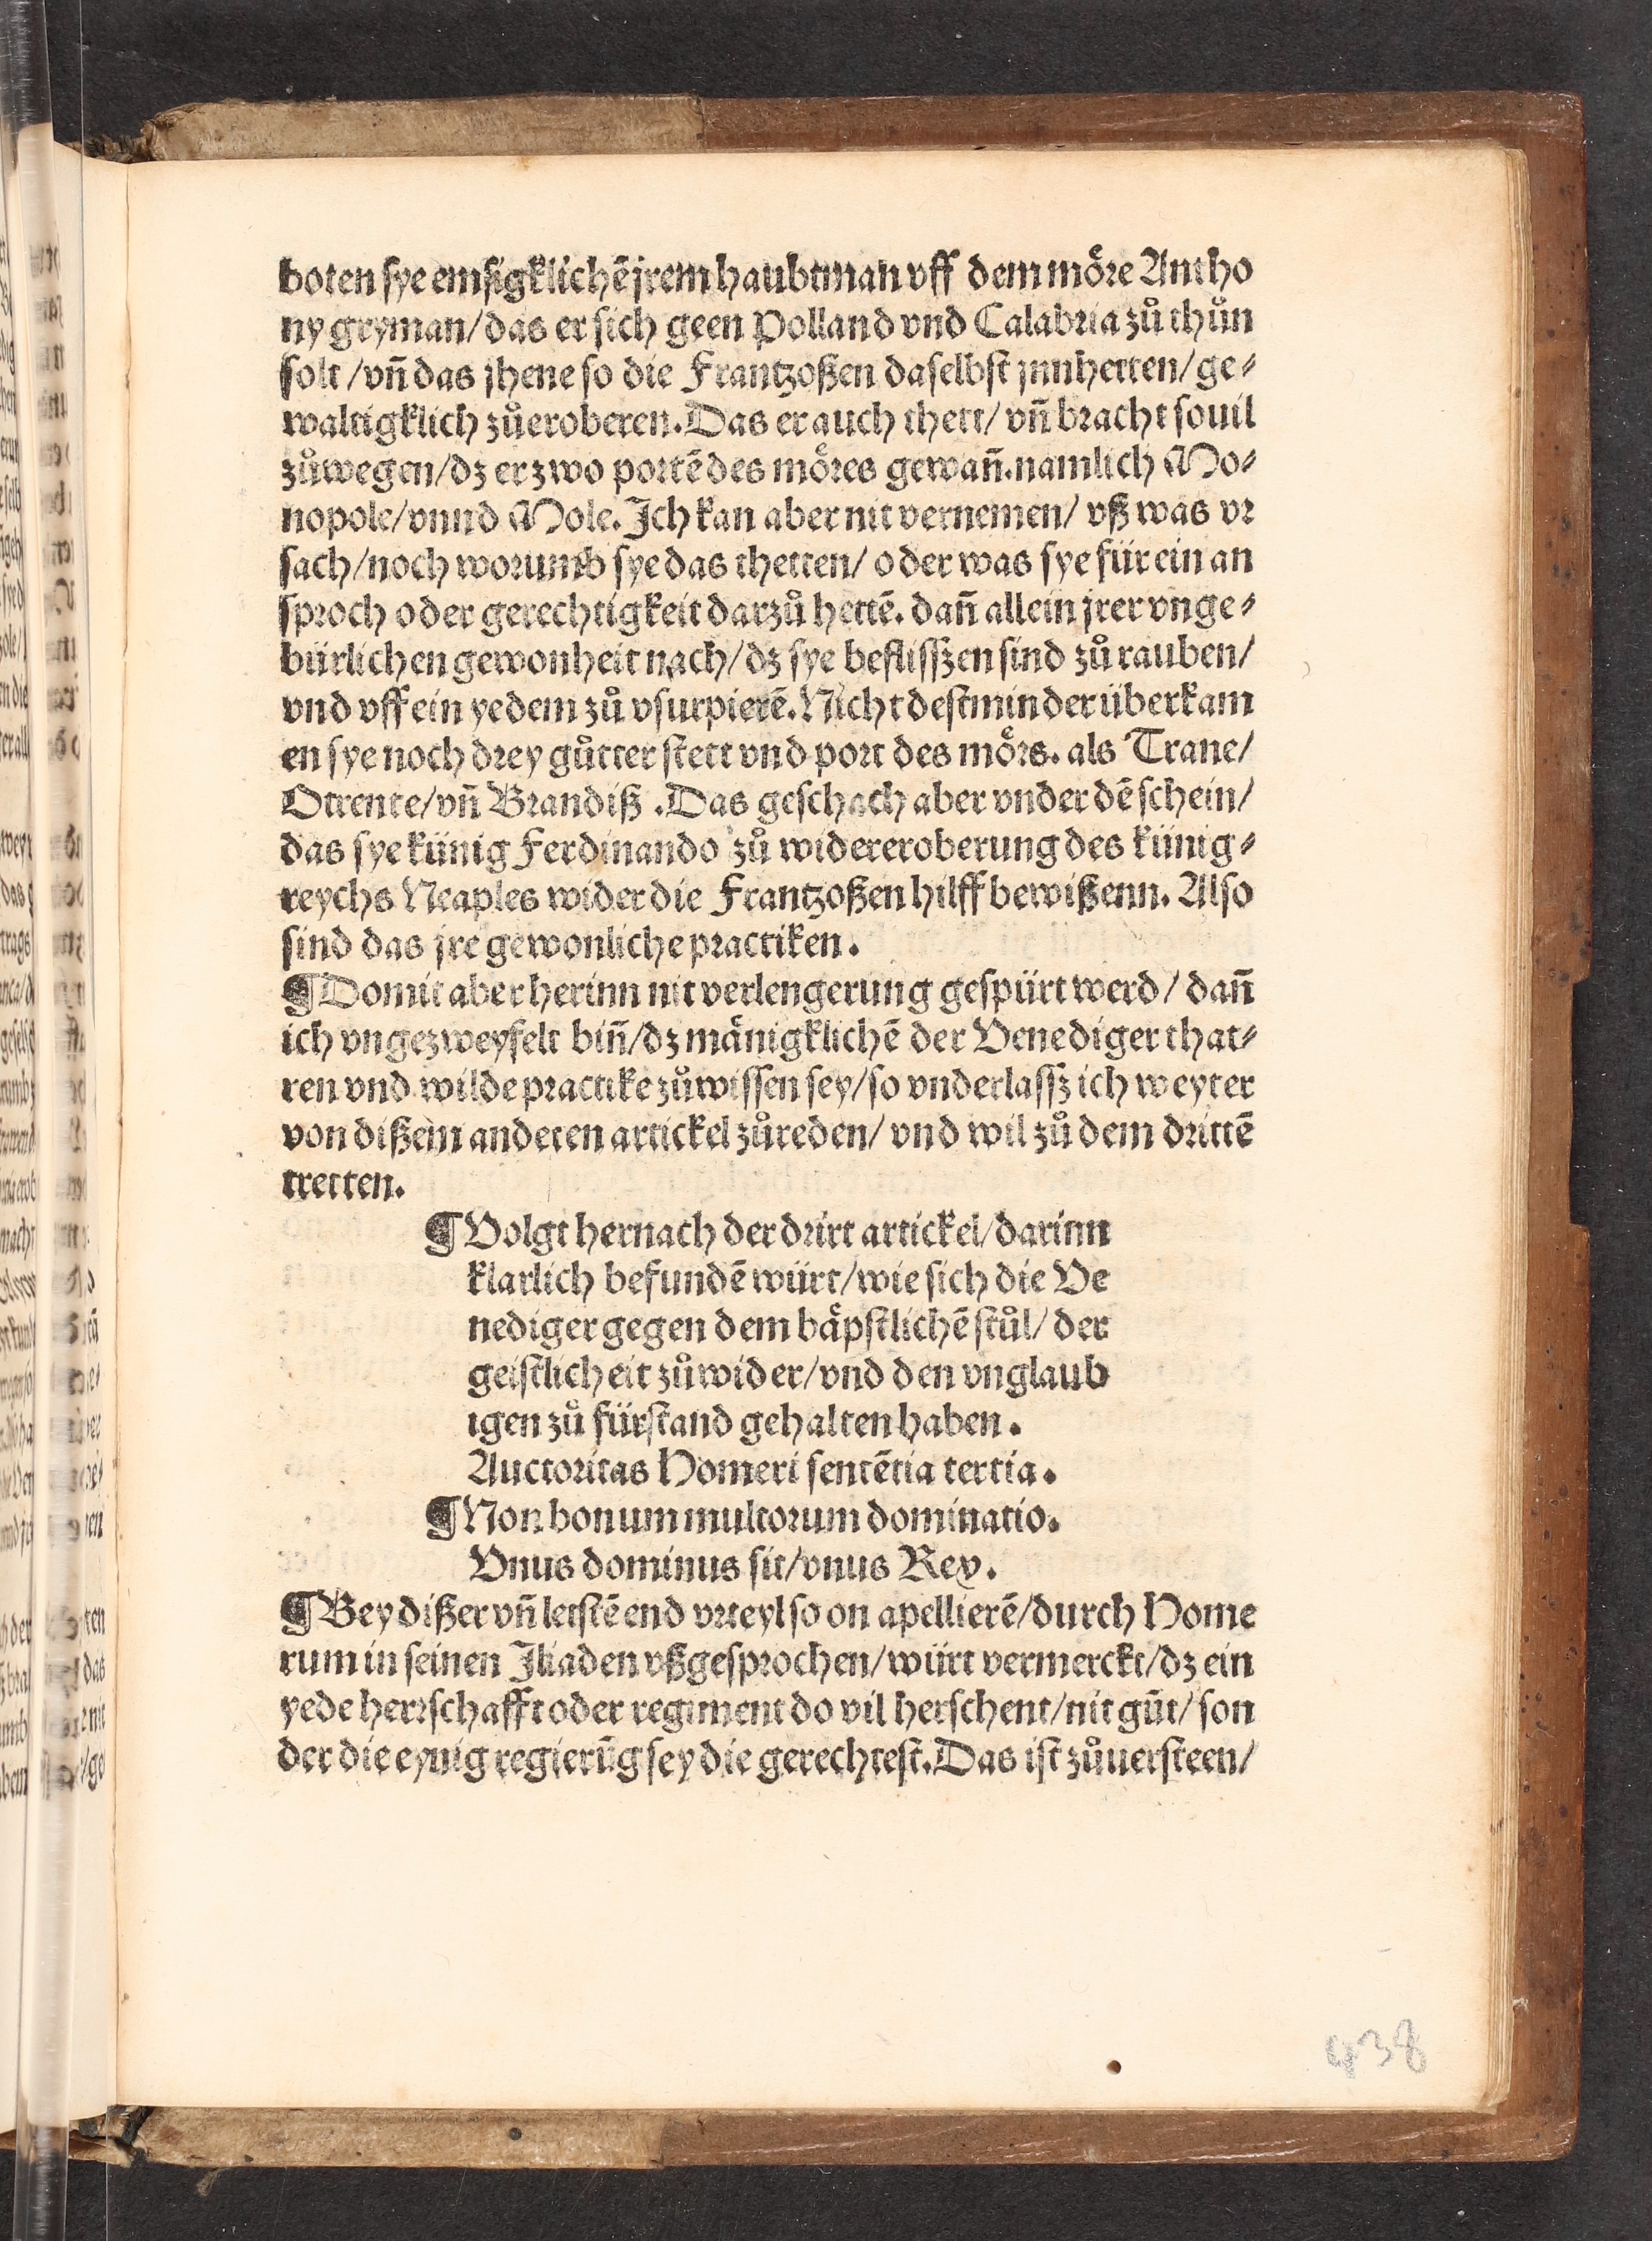 boten sye emsigklichē jrem haubtman vff dem möre Antho
ny gryman/ das er sich geen Polland vnd Calabria zů thůn
solt/ vñ das jhene so die Frantzoßen daselbst jnnhetten/ ge⸗
waltigklich zůeroberen. Das er auch thett/ vñ bracht souil
zůwegen/ dz er zwo portē des möres gewañ. namlich Mo⸗
nopole/ vnnd Mole. Ich kan aber nit vernemen/ vß was vr
sach/ noch worumb sye das thetten/ oder was sye für ein an
sproch oder gerechtigkeit darzů hettē. dañ allein jrer vnge⸗
bürlichen gewonheit nach/ dz sye beflisszen sind zů rauben/
vnd vff ein yedem zů vsurpierē. Nicht destminder überkam
en sye noch drey gůtter stett vnd port des mörs. als Trane/
Otrente/ vñ Brandiß. Das geschach aber vnder dē schein/
das sye künig Ferdinando zů widereroberung des künig⸗
reychs Neaples wider die Frantzoßen hilff bewißenn. Also
sind das jre gewonliche practiken.
¶Domit aber herinn nit verlengerung gespürt werd/ dañ
ich vngezweyfelt biñ/ dz mänigklichē der Venediger that⸗
ten vnd wilde practike zůwissen sey/ so vnderlassz ich weyter
von dißem anderen artickel zůreden/ vnd wil zů dem drittē
tretten.
¶Volgt hernach der dritt artickel/ darinn
klarlich befundē würt/ wie sich die Ve
nediger gegen dem bäpstlichē stůl/ der
geistlicheit zůwider/ vnd den vnglaub
igen zů fürstand gehalten haben.
Auctoritas Homeri sentētia tertia.
¶Non bonum multorum dominatio.
Vnus dominus sit/ vnus Rex.
¶Bey dißer vñ letstē end vrteyl so on apellierē/ durch Home
rum in seinen Iliaden vßgesprochen/ würt vermerckt/ dz ein
yede herrschafft oder regiment do vil herschent/ nit gůt/ son
der die eynig regierūg sey die gerechtest. Das ist zůuersteen/
438